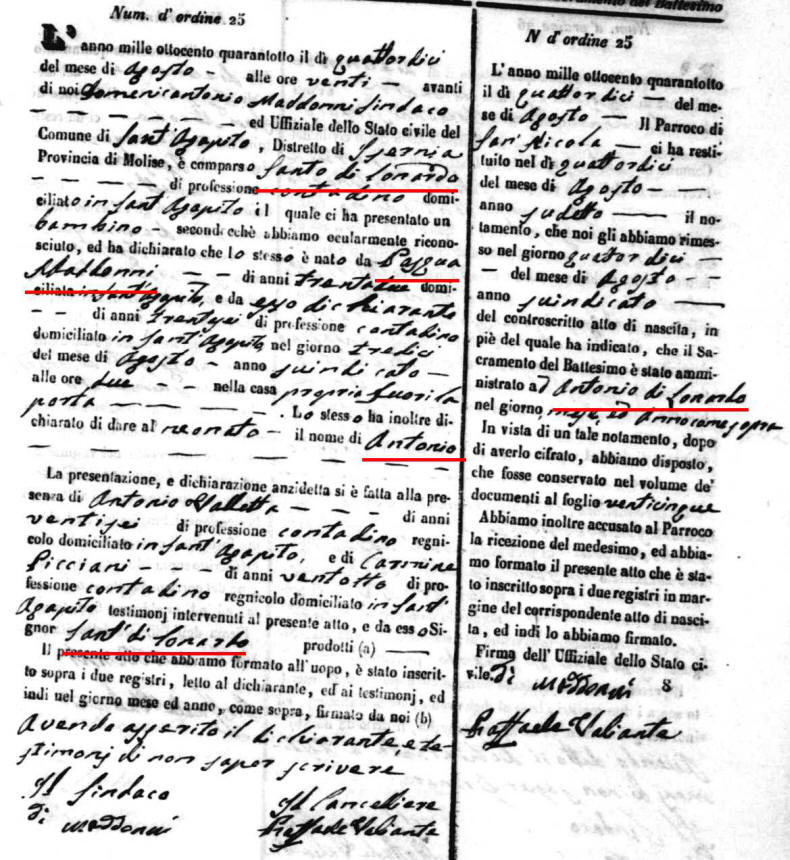 Sacramento del Battesimo
Num. d' ordine 25
L' anno mille ottocento quarantotto il dì quattordici
del mese di Agosto — alle ore venti — avanti
di noi Domenicantonio Maddonni Sindaco
— — — ed Uffiziale dello Stato civile del
Comune di Sant'Agapito, Distretto di Isernia
Provincia di Molise, è comparso Santo di Lonardo
— — — di professione contadino domi-
ciliato in Sant'Agapito il quale ci ha presentato un
bambino — secondecchè abbiamo ocularmente ricono-
sciuto, ed ha dichiarato che lo stesso è nato da Pasqua
Maddonni — — di anni trentadue domi-
ciliata in Sant'Agapito, e da esso dichiarante
— — di anni trentasei di professione contadino
domiciliato in Sant'Agapito nel giorno tredici
del mese di Agosto — anno suindicato —
alle ore due — — nella casa propria fuori la
porta — — — . Lo stesso ha inoltre di-
chiarato di dare al neonato — il nome di Antonio
La presentazione, e dichiarazione anzidetta si è fatta alla pre-
senza di Antonio Valletta — — — di anni
ventisei di professione contadino regni-
colo domiciliato in Sant'Agapito, e di Carmine
Picciani — — di anni ventotto di pro-
fessione contadino regnicolo domiciliato in Sant'
Agapito testimonj intervenuti al presente atto, e da esso Si-
gnor Sant' di Lonardo prodotti (a) —
Il presente atto che abbiamo formato all'uopo, è stato inscrit-
to sopra i due registri, letto al dichiarante, ed ai testimonj, ed
indi nel giorno mese ed anno, come sopra, firmato da noi (b)
Avendo asserito il dichiarante, e te-
stimonj di non saper scrivere
Il Sindaco
Di Maddonni
Il Cancelliere
Raffaele Valiante
N d'ordine 25
L'anno mille ottocento quarantotto
il dì quattordici — del me-
se di Agosto — Il Parroco di
San Nicola — ci ha resti-
tuito nel dì quattordici
del mese di Agosto — —
anno sudetto — il no-
tamento, che noi gli abbiamo rimes-
so nel giorno quattordici
— del mese di Agosto —
anno suindicato —
del controscritto atto di nascita, in
piè del quale ha indicato, che il Sa-
cramento del Battesimo è stato ammi-
nistrato ad Antonio di Lonardo
nel giorno, mese, ed Anno come sopra
In vista di un tale notamento, dopo
di averlo cifrato, abbiamo disposto,
che fosse conservato nel volume de'
documenti al foglio venticinque
Abbiamo inoltre accusato al Parroco
la ricezione del medesimo, ed abbia-
mo formato il presente atto che è sta-
to inscritto sopra i due registri in mar-
gine del corrispondente atto di nasci-
ta, ed indi lo abbiamo firmato.
Firma dell' Uffiziale dello Stato ci-
vile. Di Maddonni 8
Raffaele Valiante